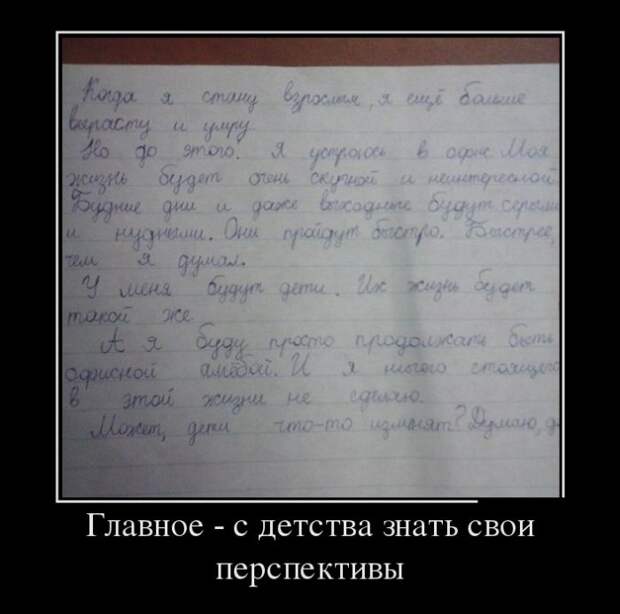 Когда я стану взрослым, я ещё больше
вырасту и умру
Но до этого. Я устроюсь в офис. Моя
жизнь будет очень скучной и неинтересной
Будние дни и даже выходные будут серыми
и нудными. Они пройдут быстро. Быстрее,
чем я думал.
У меня будут дети. Их жизнь будет
такой же.
А я буду просто продолжать быть
офисной амёбой. И я ничего стоящего
в этой жизни не сделаю.
Может, дети что-то изменят? Думаю,
Главное - с детства знать свои
перспективы